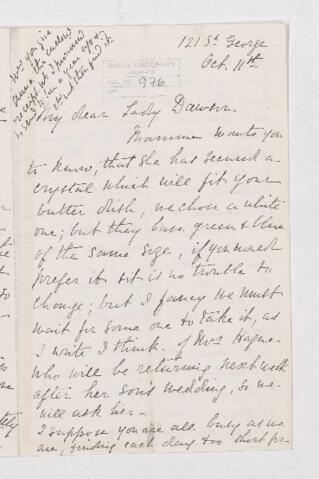 121 St. George
Oct. 11th
My dear Lady Dawson.
Mamma wants you
to know, that she has secured a
crystal which will fit your
butter dish, we chose a white
one; but they have green & blue
of the same size, if you would
prefer it & it is no trouble to
change; but I fancy we must
wait for some one to take it, as
I write I think of Mrs Hague
who will be returning next week
after her son's wedding, so we
will ask her—
I suppose you are all busy as we
are, finding each day too short for
Will you give
receipt I promised
to send a year ago &
could not then find it
McGILL UNIVERSITY
ARCHIVES
976